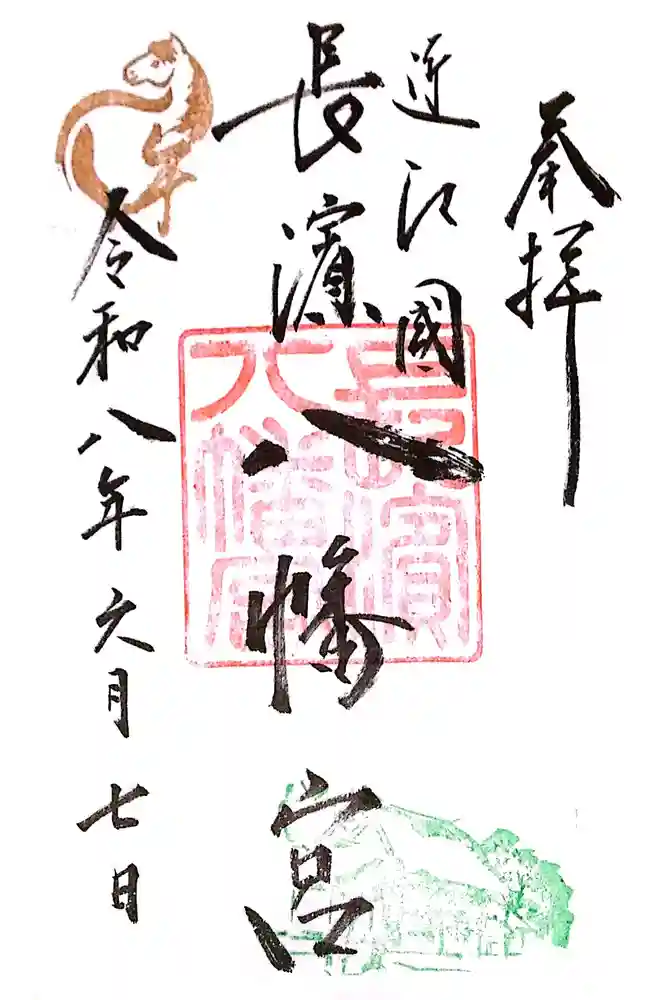 奉拝
近江國
長濱八幡宮
長濱
八幡宮
午
令和八年六月七日